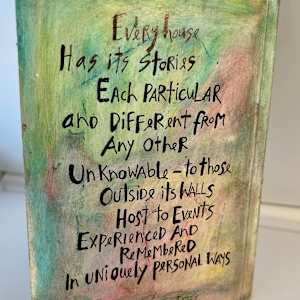 Every house
Has its Stories
Each Particular
and Different from
Any Other
Unknowable - to those
Outside its Walls
Host to Events
Experienced And
Remembered
In uniquely personal ways